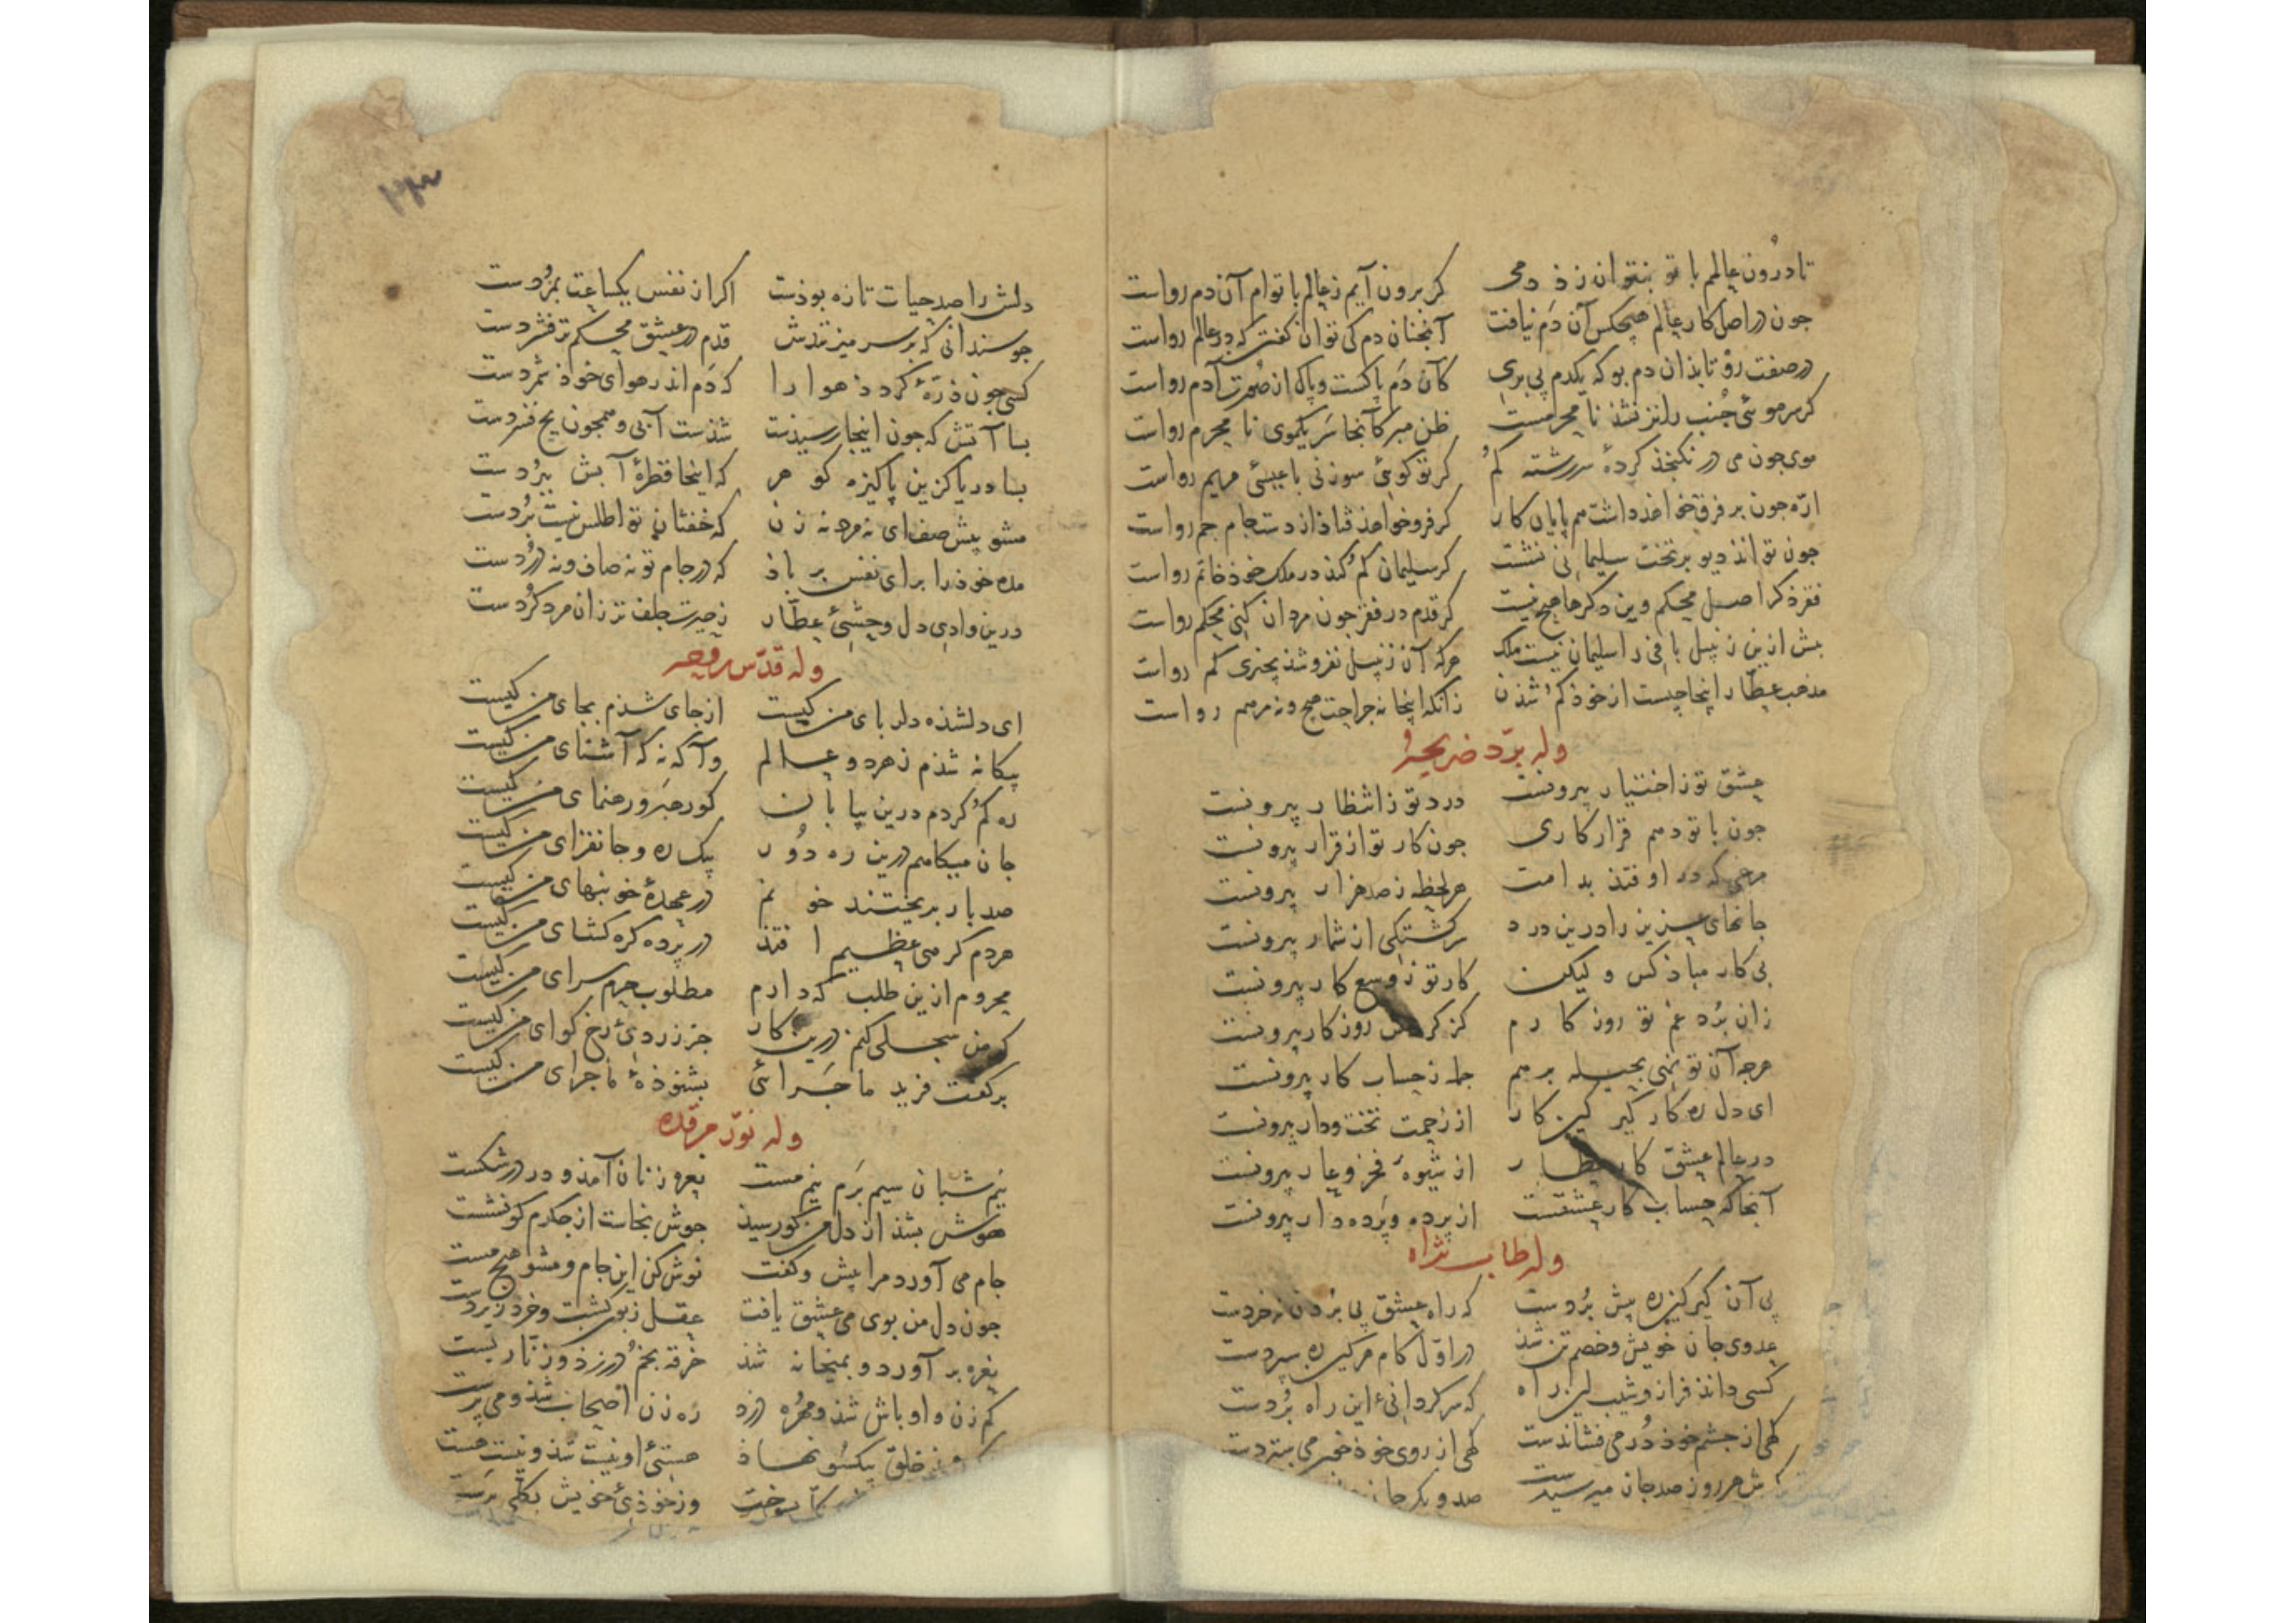 تا درون عالم با تو بتوان زذ دمی کر برون آیم ز عالم با توام آن دم رواست
جون در اصل کار عالم هیچکس آن دم نیافت آنجنان دم کی توان کفت که در عالم رواست
در صفت رو تا بذان دم بو که یکدم پی بری کان دم پاکست و پاک از صورت آدم رواست
کر سر موئی جنب را تر نشذ نا محرمست ظن مبر کآنجا سر یکموی نا محرم رواست
موی جون می در نکنجذ کردهٔ سررشته کم کر تو کوئی سوزنی با عیسئ مریم رواست
ارّه جون بر فرق خواهذ داشت جم پایان کار کر فرو خواهذ فتاذ از دست جام جم رواست
جون توانذ دیو بر تخت سلیمانی نشست کر سلیمان کم کند در ملک خوذ خاتم رواست
فقر ذکر اصل محکم وین دکرها هیچ نیست کر قدم در فقر جون مردان کنی محکم رواست
بیش ازین زنبیل بافی را سلیمان نیست ملک هرکه آن زنبیل نفروشذ بچیزی کم رواست
مذهب عطّار اینجا چیست از خوذ کم شذن زانکه اینجا نه جراحت هیچ و نه مرهم رواست
وله برّد ضریحه
عشق تو ز اختیار بیرونست درد تو ز انتظار بیرونست
جون با تو دهم قرار کاری جون کار تو از قرار بیرونست
مرغی که در اوفتذ بدامت هر لحظه ز صد هزار بیرونست
جانهای عزیز را درین درد سرکشتکی از شمار بیرونست
بی کار مباذ کس ولیکن کار تو ز وسع کار بیرونست
زان برد غم تو روزکارم کز کردش روزکار بیرونست
هرجه آن تو نهی بحیله بر هم جمله ز حساب کار بیرونست
ای دل ره کار کیر کین کار از زحمت تخت و دار بیرونست
در عالم عشق کار عطار از شیوهٔ فخر و عار بیرونست
آنجا که حساب کار عشقست از پرده و پرده دار بیرونست
وله طاب ثراه
پی آن کیر کین ره پیش بردست که راه عشق پی بردن نه خردست
عدوی جان خویش و خصم تن شذ در اول کام هرکین ره سپردست
کسی دانذ فراز و شیب این راه که سرکردانئ این راه بردست
کهی از جشم خوذ در می فشاندست کهی از روی خوذ خون می ستردست
کش هر روز صد جان میرسیدست صد و یکر جان
دلش را صد حیات تازه بوذست اکر از نفس یکساعت بمردست
جو سندانی که بر سر میزنندش قدم در عشق محکم تر فشردست
کسی جون ذرّهٔ کردد هوا را که دم اندر هوای خوذ شمردست
بسا آتش که جون اینجا رسیذست شذست آبی و همجون یخ فسردست
بسا دریا کزین پاکیزه کوهر که اینجا قطرهٔ آبش ببردست
مشو پیش صف ای نه مرد نه زن که خفتان تو اطلس نیست بردست
مده خوذ را برای نفس بر باذ که در جام تو نه صاف و نه دردست
درین وادی دل وحشئ عطّار ز حیرت جلف تر زان مرد کردست
وله قدّس روحه
ای دلشذه دلربای من کیست از جای شذم بجای من کیست
بیکانه شذم ز هر دو عالم وآکه نه که آشنای من کیست
ره کم کردم درین بیابان کو رهبر و رهنمای من کیست
جان میکاهم درین ره دور پیک ره و جانفزای من کیست
صد بار بریختند خونم در عهدهٔ خونبهای من کیست
هردم کرهی عظیم افتذ در پرده کره کشای من کیست
محروم ازین طلب که دارم مطلوب حرم سرای من کیست
کر من سجلی کنم درین کار جز زردئ رخ کوای من کیست
بر کفت فرید ماجرائی بشنوذهٔ ماجرای من کیست
وله نوّر مرقده
نیم شبان سیم برم نیم مست نعره زنان آمذ و در درشکست
هوش بشذ از دل من کو رسیذ جوش بخاست از جکرم کو نشست
جام می آورد مرا پیش و کفت نوش کن این جام و مشو هیج مست
جون دل من بوی می عشق یافت عقل زبون کشت و خرد زیردست
نعره بر آورد و بمیخانه شذ خرقه بخم در زذ و زنّار بست
کم زن و اوباش شذ و مهره دزد ره زن اصحاب شذ و می پرست
ز خلق یکسو نهاذ هستئ او نیست شذ و نیست هست
وز خوذئ خویش بکلی برست